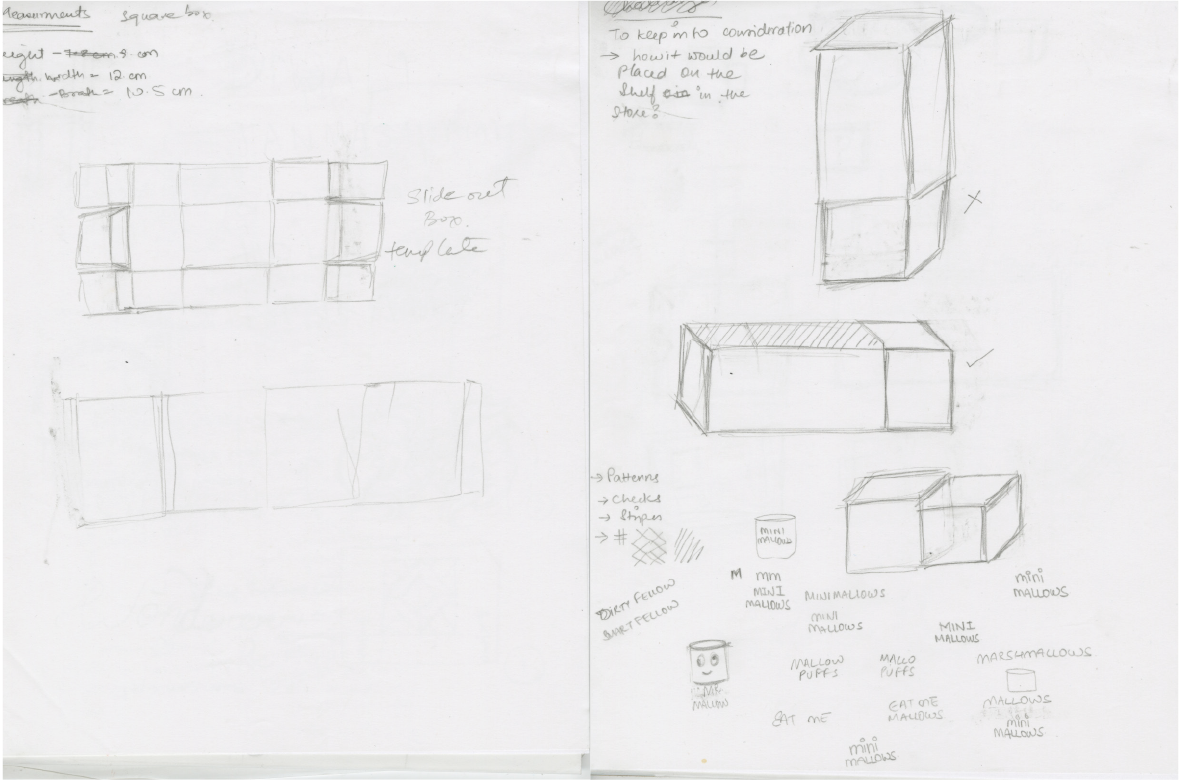 Measurements Square box
Height - 8 cm
Length width = 12 cm
= 10.5 cm.
Slide out
Box.
template
To keep into consideration
→ how it would be
placed on the
shelf in the
store?
X
✓
→ Patterns
→ Checks
→ Stripes
→ #
MINI
MALLOWS
M mm
MINI
MALLOWS
MINIMALLOWS
MINI
MALLOWS
mini
MALLOWS
MINI
MALLOWS
DIRTY FELLOW
SMART FELLOW
MALLOW
MALLOW
PUFFS
MALLO
PUFFS
MARSHMALLOWS
EAT ME
EAT ME
MALLOWS
MALLOWS
mini
MALLOWS
mini
MALLOWS